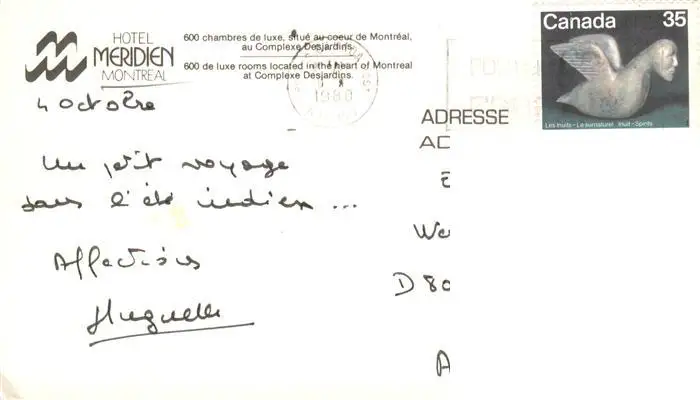 HOTEL
MERIDIEN
MONTREAL
600 chambres de luxe, situé au coeur de Montréal,
au Complexe Desjardins.
600 de luxe rooms located in the heart of Montreal
at Complexe Desjardins.
Canada 35
Les Inuits - Le surnaturel Inuit - Spirits
1980
4 octobre
Un petit voyage
dans l'été indien ...
Affections
Huguette
ADRESSE
AD
E
We
D 80
A